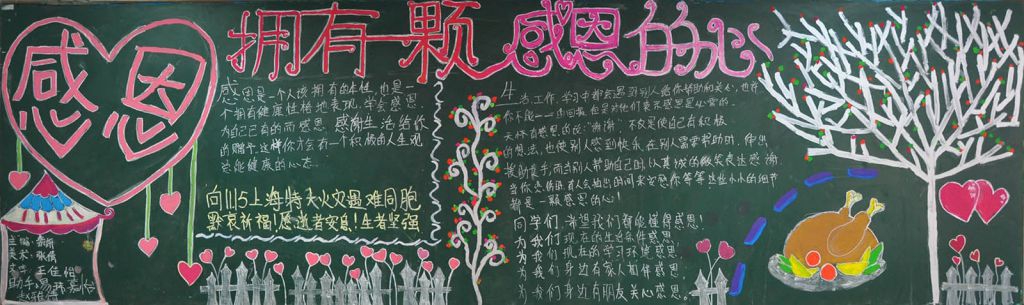 感恩
拥有一颗感恩的心
感恩是一个人该拥有的本性，也是一
个拥有健康性格地表现，学会感恩
为自己已有的而感恩，感谢生活给你
的赠予，这样你才会有一个积极的人生观
总能健康的心态。
向11.15上海特大火灾遇难同胞
默哀祈福！愿逝者安息！生者坚强
生活、工作、学习中都会遇到别人给你帮助和关心，也许
你不能一一的回报，但是对他们表示感恩是必需的。
天怀有感恩的说：“谢谢”不仅是使自己有积极
的想法，也使别人感到快乐。在别人需要帮助时，伸出
援助之手，而当别人帮助自己时，以真诚的微笑表达感谢
当你悲伤时，有人会抽出时间来安慰你等等，这些小小的细节
都是一颗感恩的心！
同学们，希望我们都能懂得感恩！
为我们现在的生活条件感恩
为我们现在的学习环境感恩
为我们身边有家人陪伴感恩
为我们身边有朋友关心感恩。
主编：
美术：张倩
王佳佀
助手：